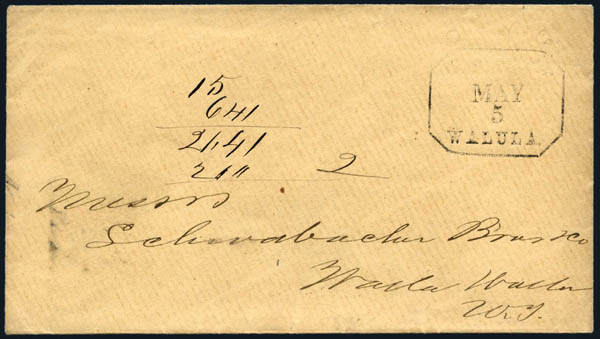 MAY
5
WALULA.
15
641
21,41
2
Messrs
Schwabacher Bros & Co
Walla Walla
W.T.